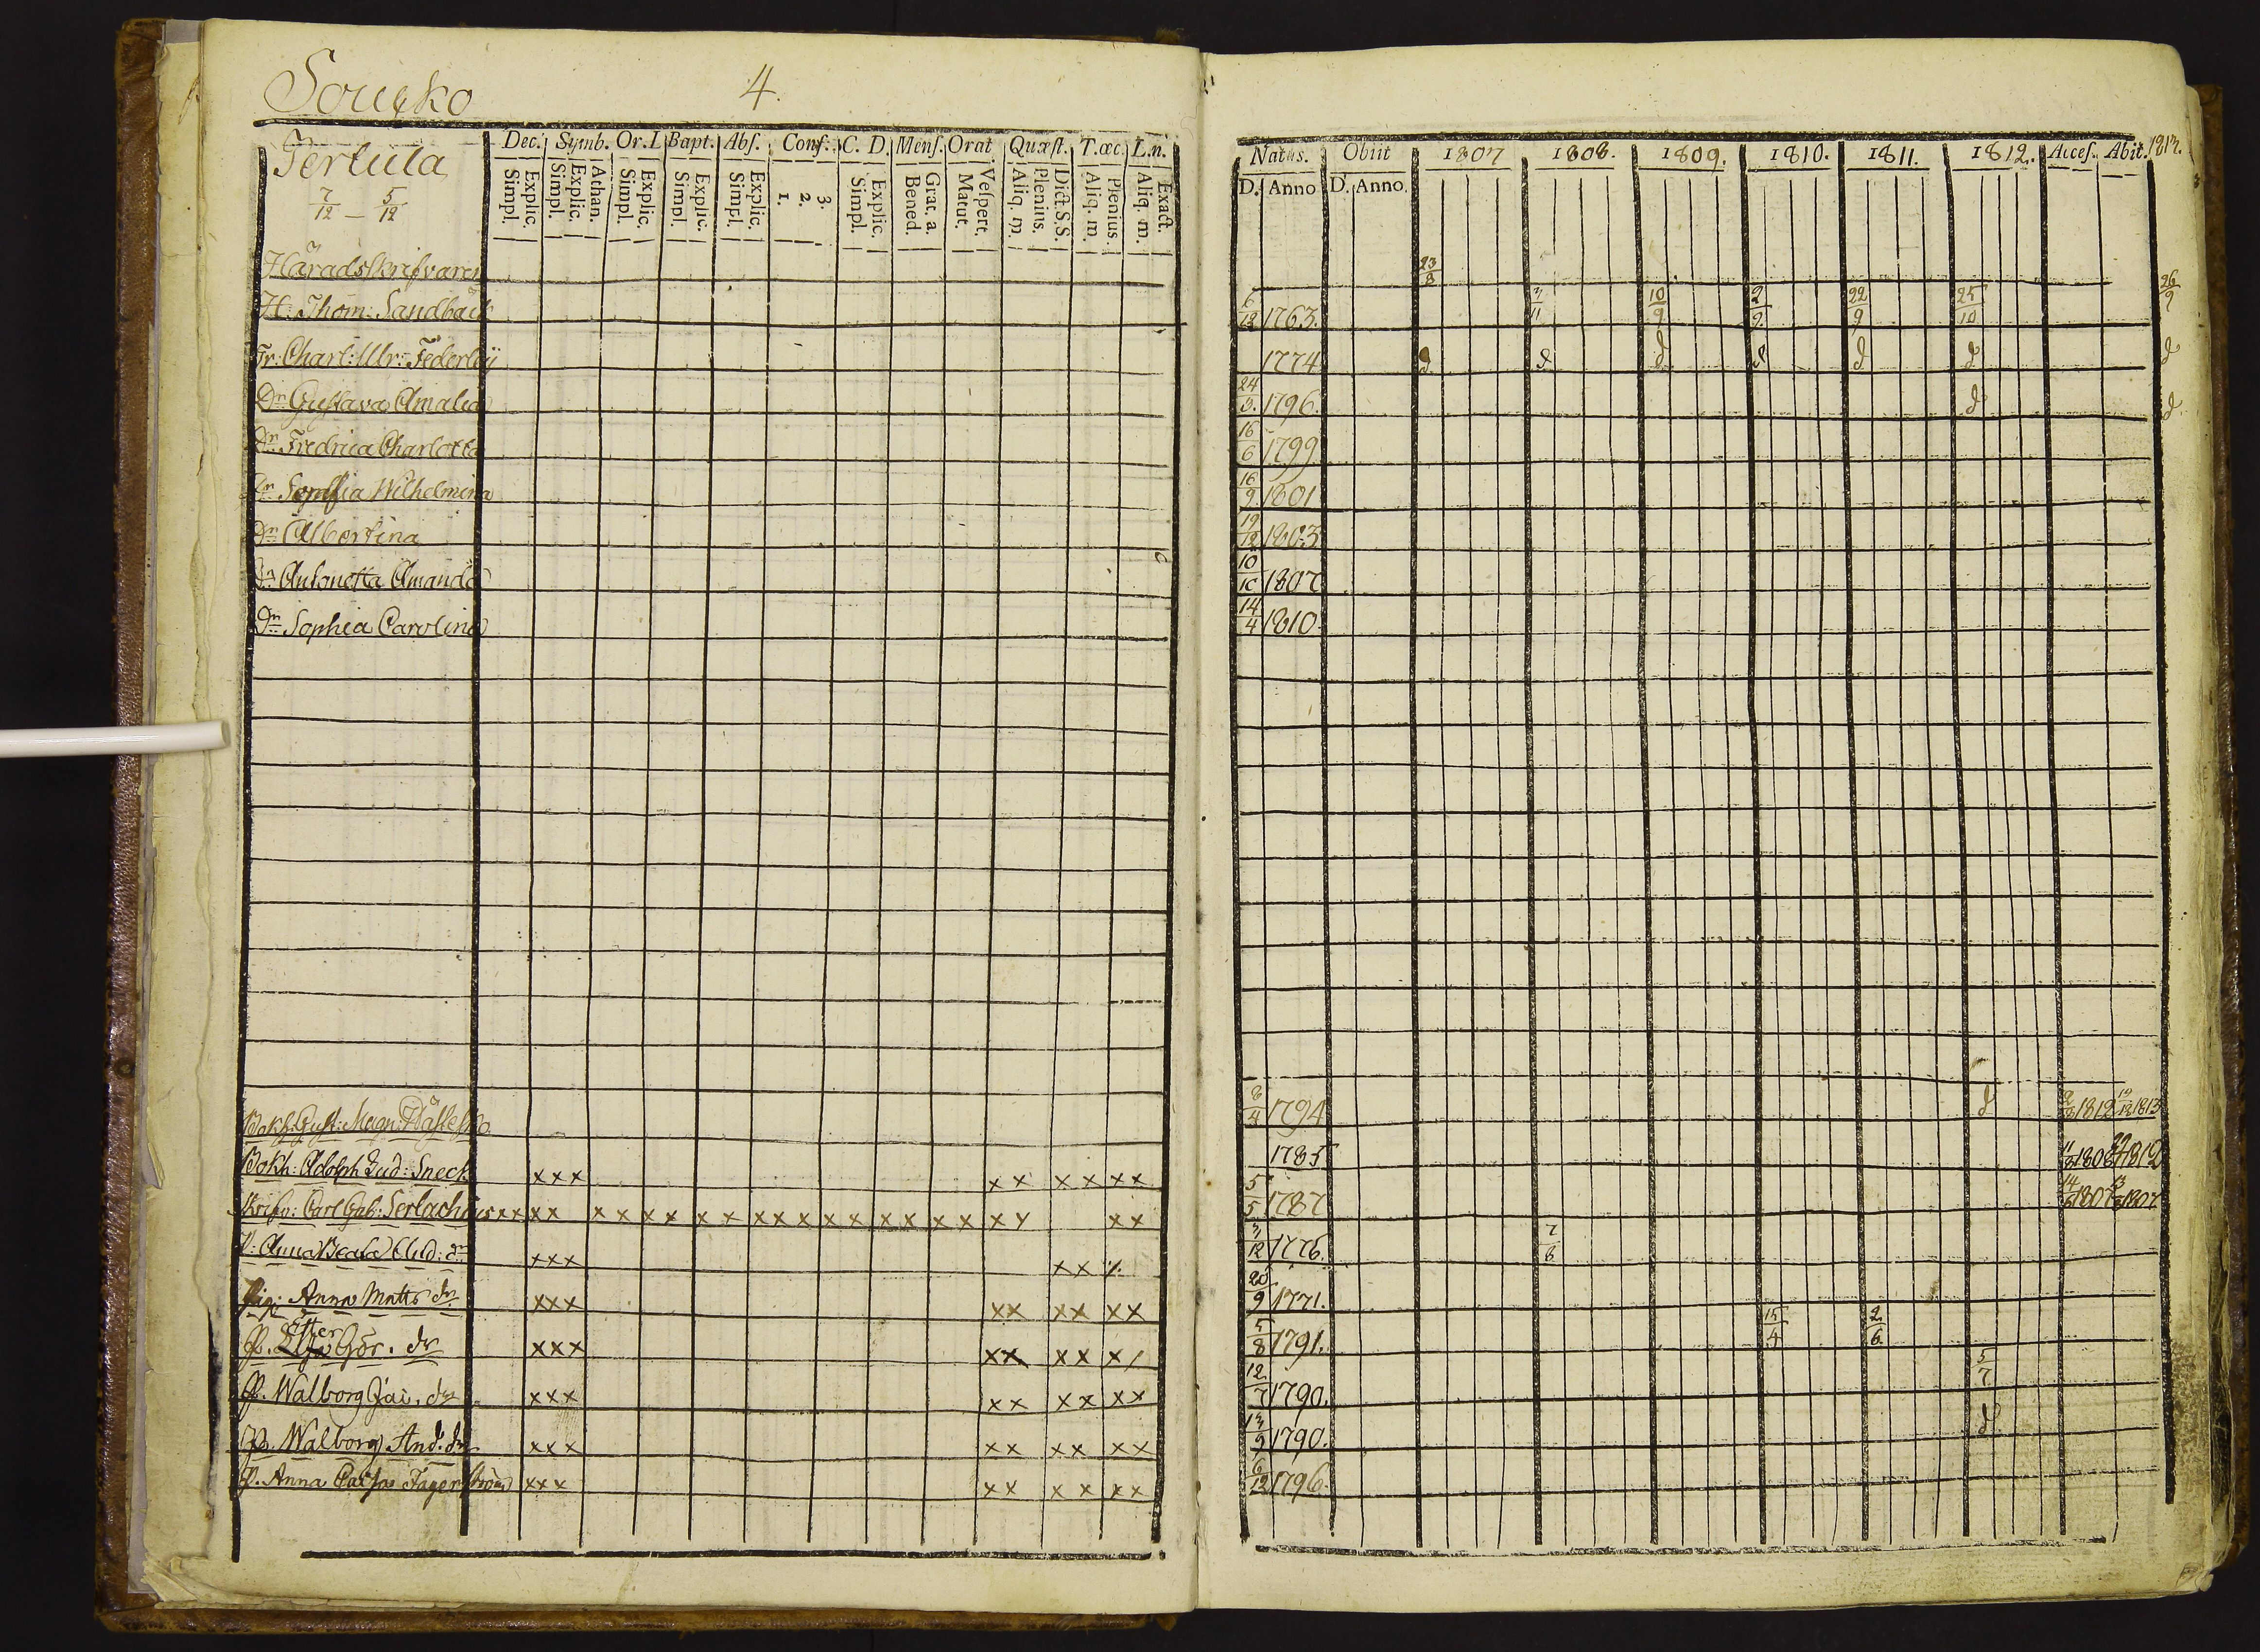 4.
Pertula
7/12 – 5/12
Dec. Symb. Or. Bapt. Abs. Conf. C. D. Mens. Orat. Quæst. T. œc. L. n.
Simpl. Explic. Simpl. Explic. Athan. Simpl. Explic. Simpl. Explic. Simpl. Explic. 1. 2. 3. Simpl. Explic. Bened. Grat. a. Matut. Vespert. Aliq. m. Plenius. Dict. S. S. Aliq. m. Plenius. Aliq. m. Exact.
Natus. Obiit 1807 1808. 1809. 1810. 1811. 1812. Acces. Abit. 1813.
D. Anno D. Anno.
Häradsskrifvaren 23/8
H: Thom: Sandbäck 6/12 1763. 3/11 10/9 2/9 22/9 25/10 26/9
Fr: Charl: Ulr: Federley 1774 d d d d d d d
Dr Gustava Amalia 24/3. 1796. d d
Dr Fredrica Charlotta 16/6 1799
Dr Sophia Wilhelmina 16/9 1801
Dr Albertina 19/12 1803
Dr Antonetta Amanda 10/10 1807
Dr Sophia Carolina 14/4 1810
Bokh: Gust: Magn: 8/4 1794 d 1812 1813
Bokh: Adolph Lud: Sneck xxx xx xx xx 1785 1808 1812
Skrifv: Carl Gab: Serlachius xx xx x x x x x x x x x x x x x x x x x x xx 5/5 1787 1807 1807
P: Anna Beata And: dr xxx xx 3/12 1776. 7/8
Pig: Anna Matts dr xxx xx xx xx 20/9 1771.
P. Etter Gör. dr xxx xx xx x/ 5/8 1791. 15/4 2/6
P. Walborg Jai. dr xxx xx xx xx 12/7 1790. 5/7
P. Walborg And. dr xxx xx xx xx 1790. d
P. Anna Caisa Fagerström xxx xx xx xx 6/12 1796.